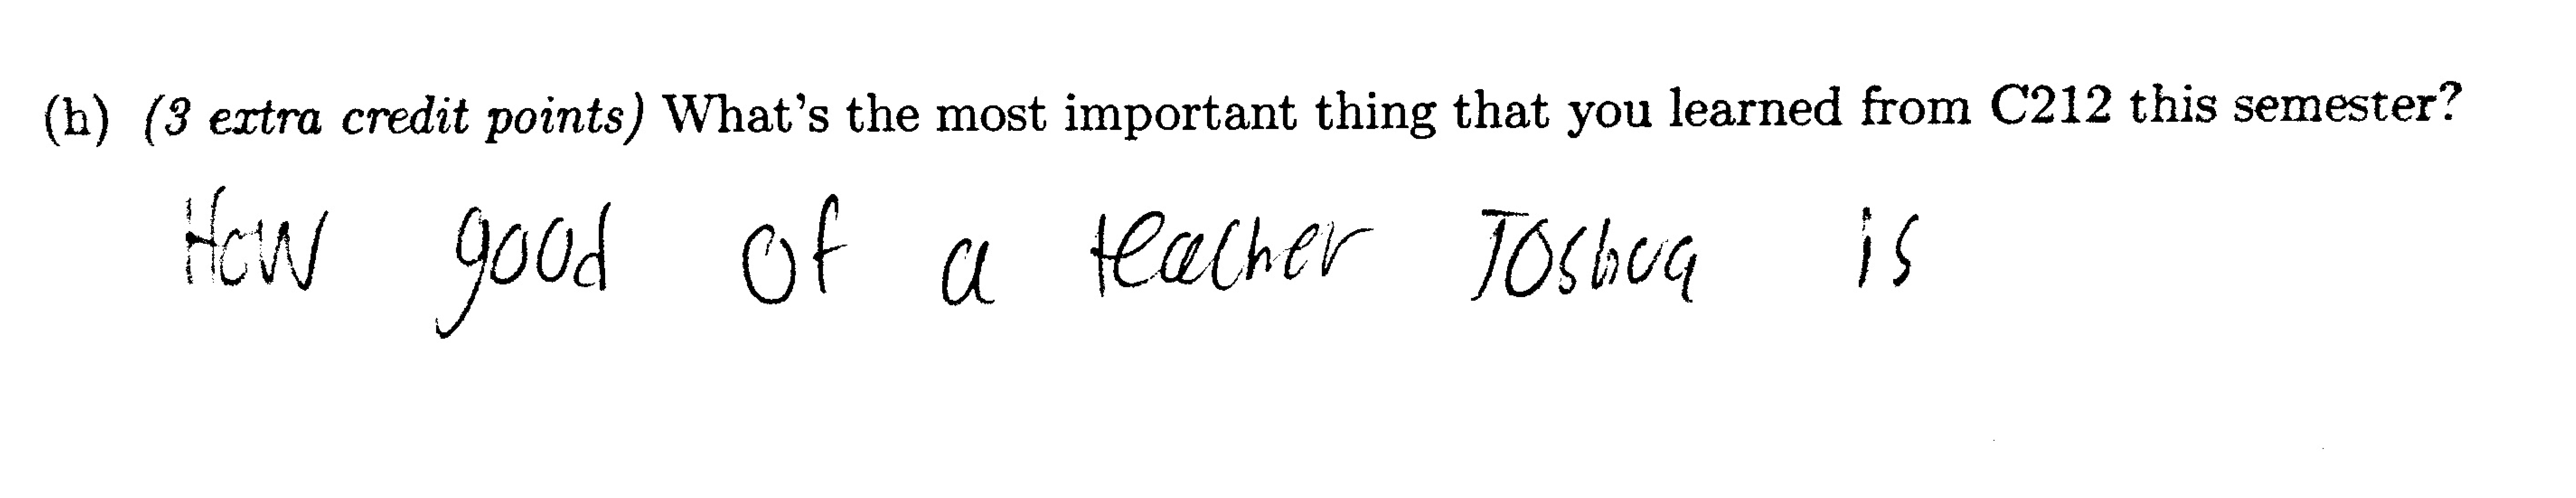 (h) (3 extra credit points) What's the most important thing that you learned from C212 this semester?
How good of a teacher Joshua is